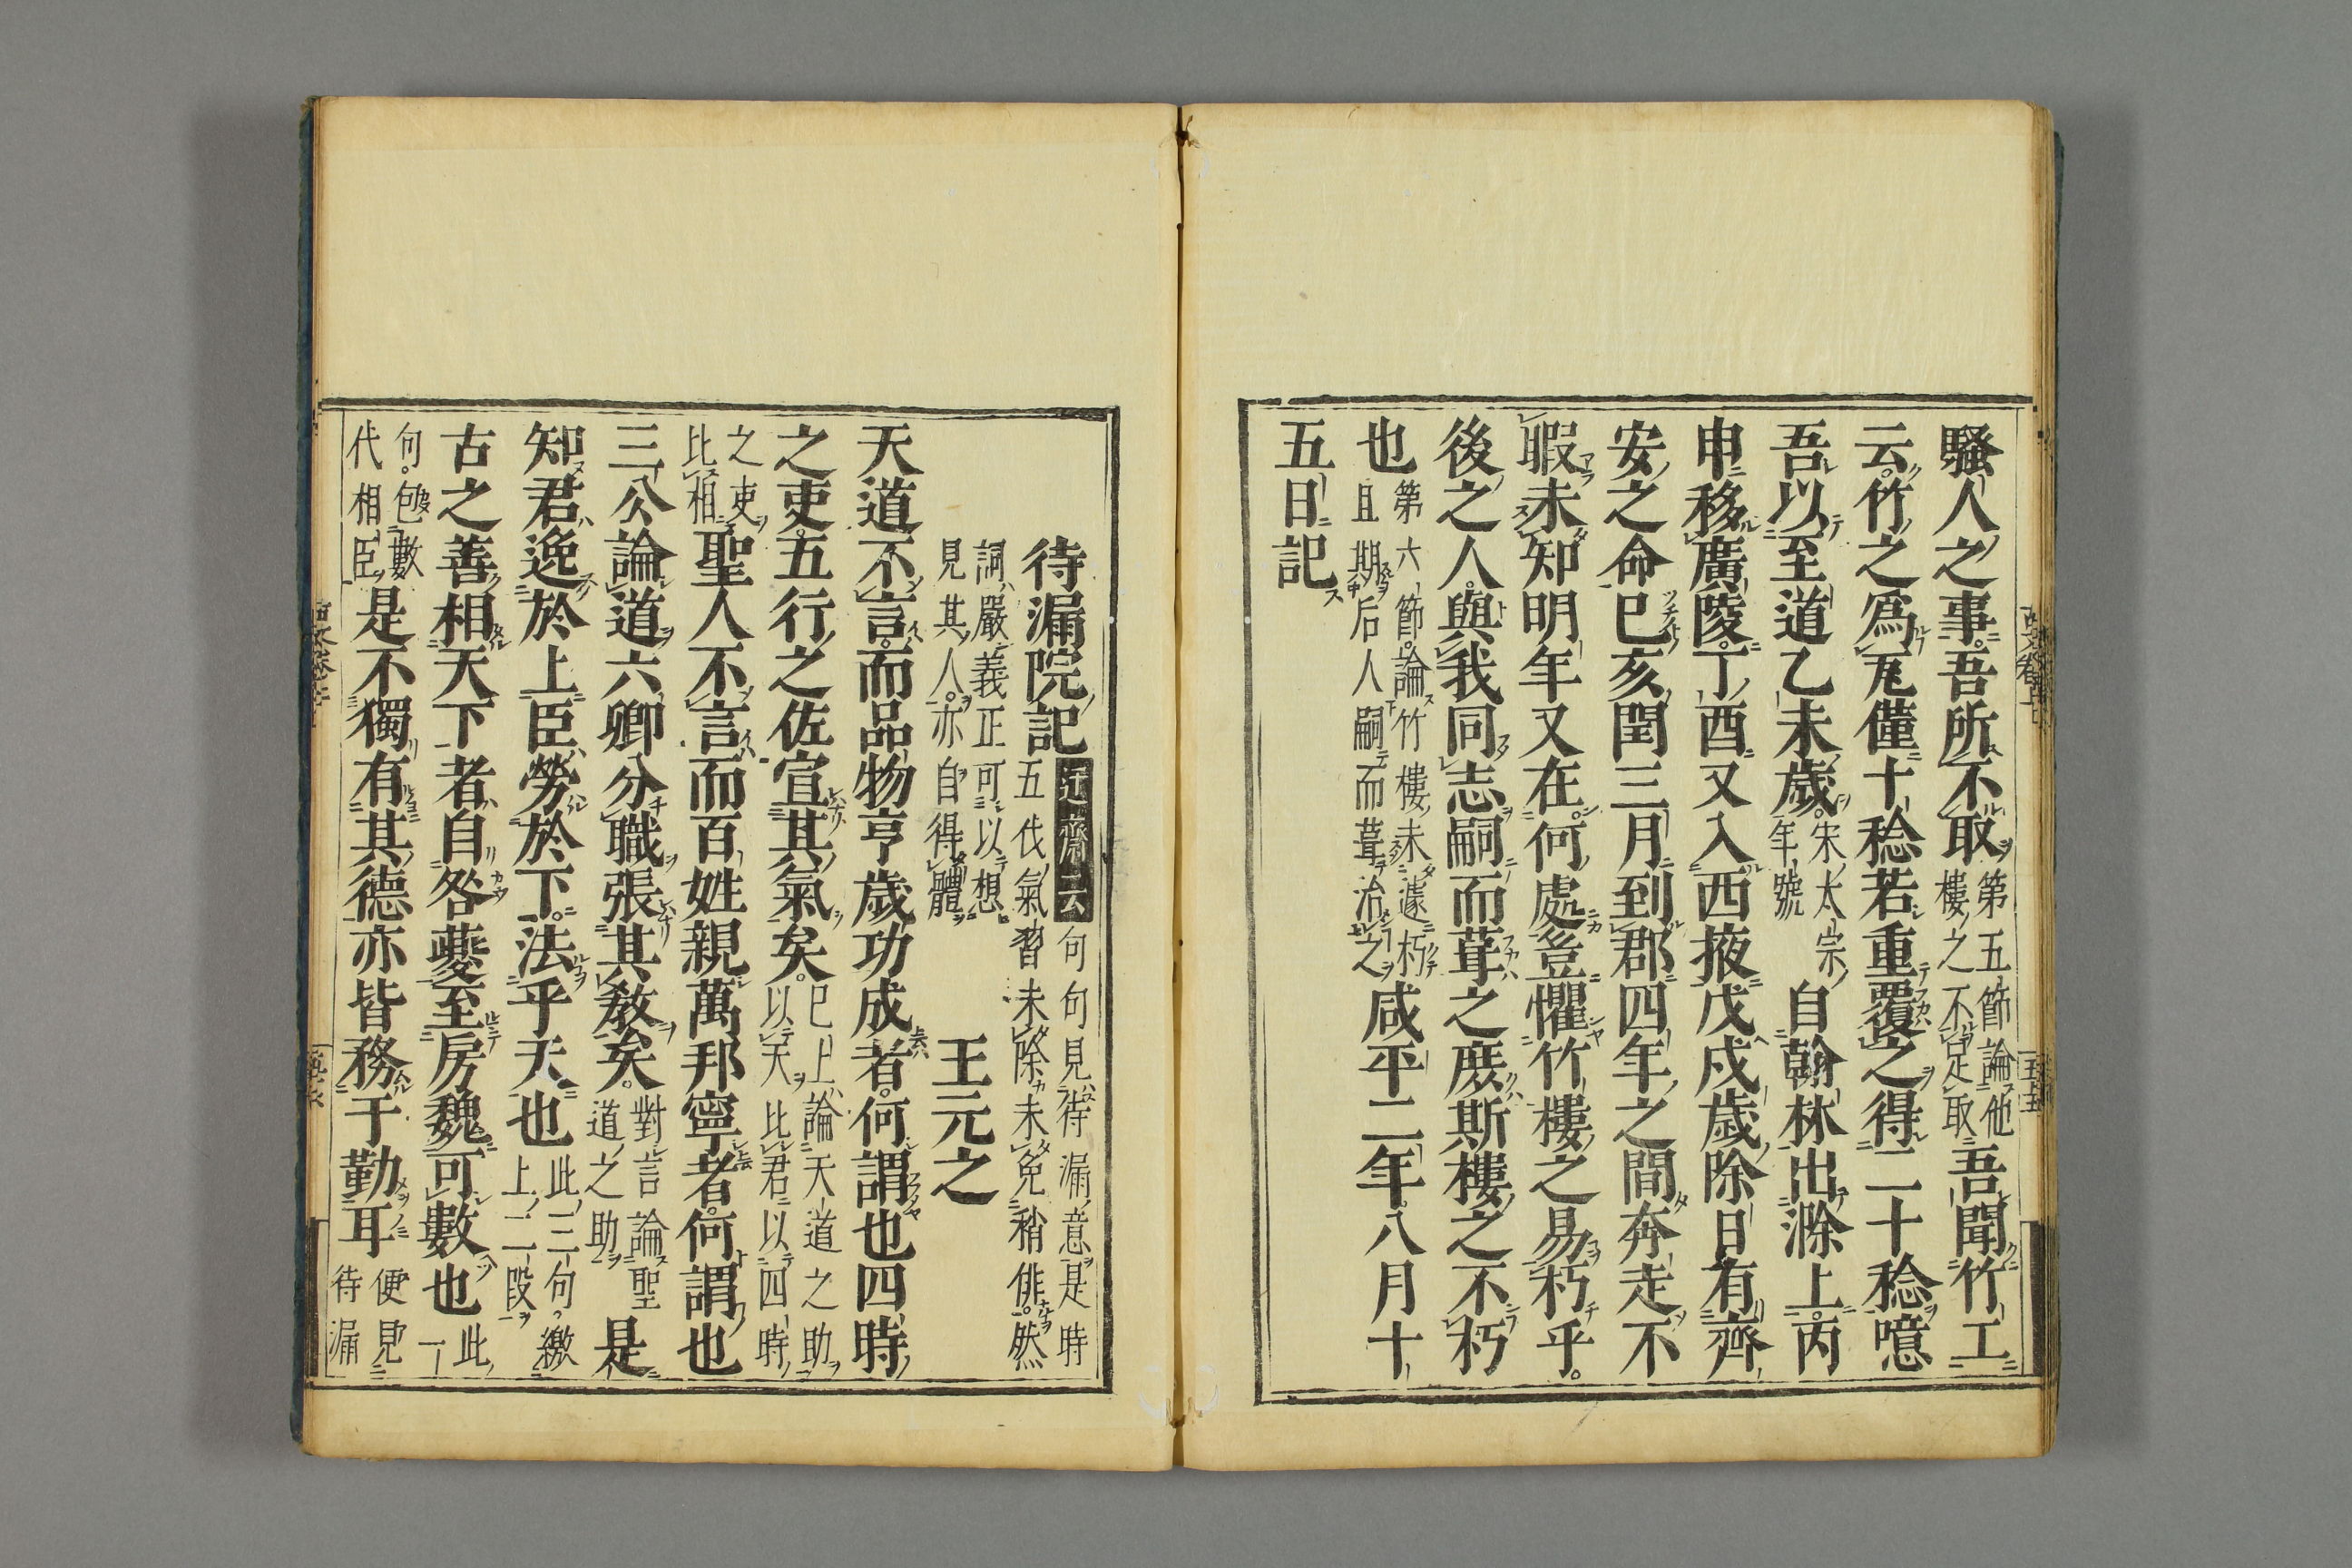 騷人之事吾所不取第五節論他樓之不足取吾聞竹工
云竹之爲瓦僅十稔若重覆之得二十稔噫
吾以至道乙未歲宋太宗年號自翰林出滁上丙
申移廣陵丁酉又入西掖戊戌歲除日有齊
安之命已亥閏三月到郡四年之間奔走不
暇未知明年又在何處豈懼竹樓之易朽乎
後之人與我同志嗣而葺之庶斯樓之不朽
也第六節論竹樓未遽朽且期后人嗣而葺治之咸平二年八月十
五日記
待漏院記迂齋云句句見待漏意是時五代氣習未除未免稍俳然
詞嚴義正可以想見其人亦自得體王元之
天道不言而品物亨歲功成者何謂也四時
之吏五行之佐宣其氣矣已上論天道之助以天比君以四時
之吏比相聖人不言而百姓親萬邦寧者何謂也
三公論道六卿分職張其敎矣對言論聖道之助是
知君逸於上臣勞於下法乎天也此三句繳上二段
古之善相天下者自咎夔至房魏可數也此一
句包數代相臣是不獨有其德亦皆務于勤耳便見待漏